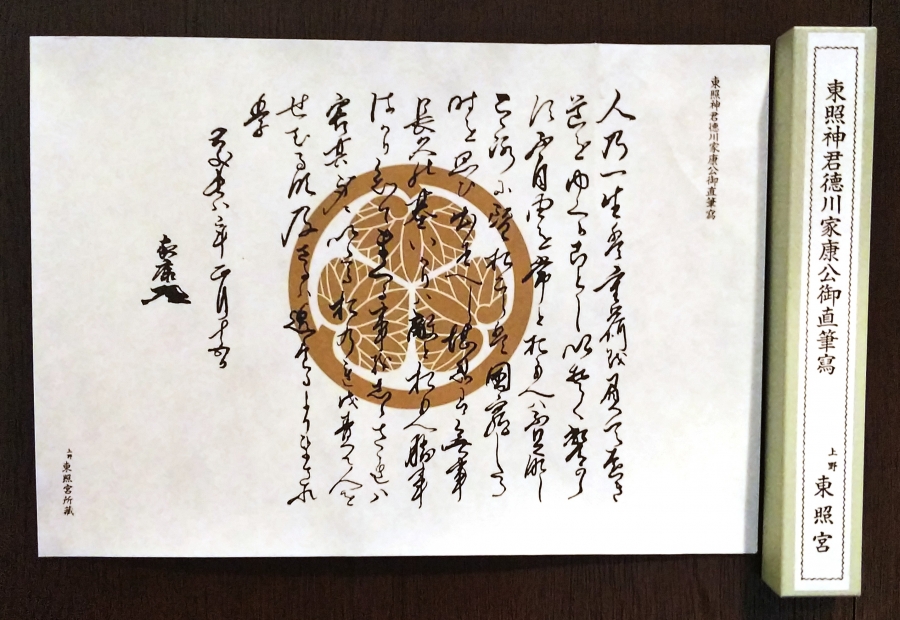 東照神君徳川家康公御直筆寫
人乃一生は重荷を負て遠き
道をゆくことしいそくへから
す不自由を常とおもへハ不足なし
こゝろに望おこらは困窮したる
時を思ひ出すへし堪忍は無事
長久の基いかりハ敵とおもへ勝事
はかり知てまくる事をしらされハ
害其身にいたるおのれを責て人を
せむるな及さるハ過たるよりまされ
り
慶長八年正月十五日
家康
上野 東照宮所藏
東照神君徳川家康公御直筆寫
上野 東照宮